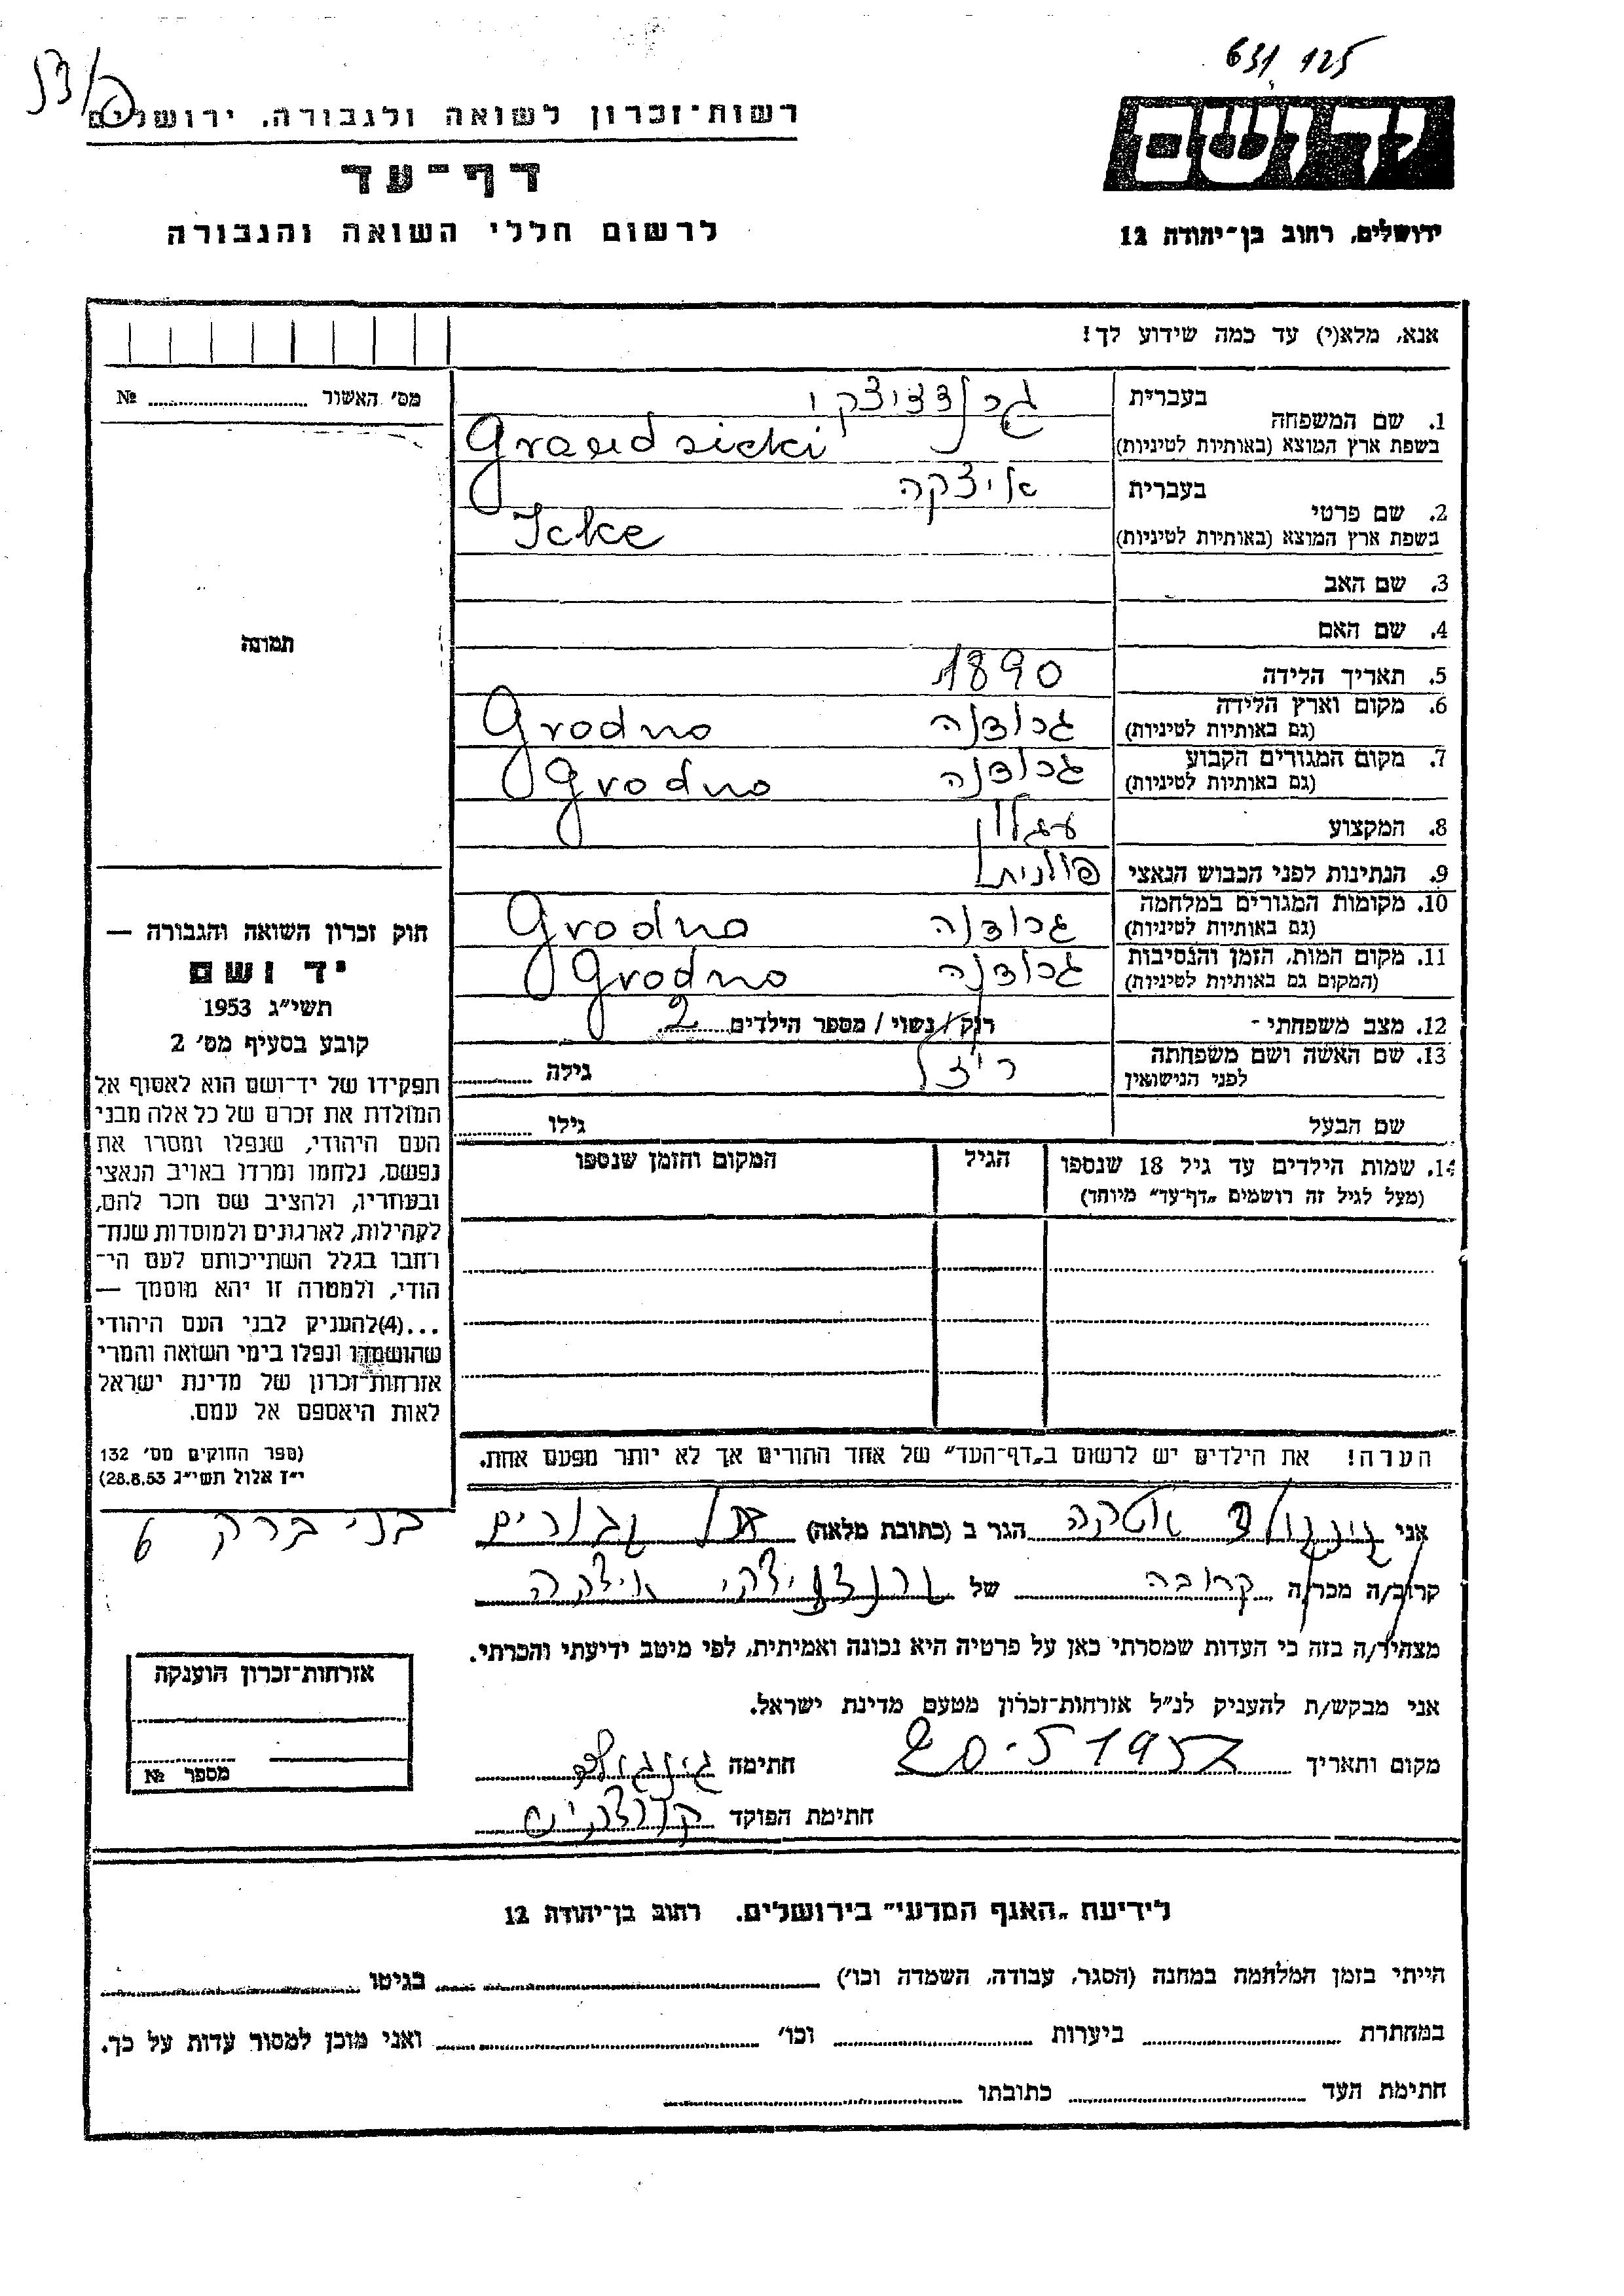 631 125
רשות־זכרון לשואה ולגבורה, ירושלים
ידושם
דף־עד
לרשום חללי השואה והגבורה
ירושלים, רחוב בן־יהודה 12
אנא, מלא(י) עד כמה שידוע לך!
מס׳ האשור № 
בעברית
1. שם המשפחה
בשפת ארץ המוצא (באותיות לטיניות) Grandzicki
בעברית איצקה
2. שם פרטי
בשפת ארץ המוצא (באותיות לטיניות) Icke
3. שם האב
4. שם האם
תמונה
5. תאריך הלידה 1890
6. מקום וארץ הלידה גרודנה Grodno
(גם באותיות לטיניות)
7. מקום המגורים הקבוע גרודנה Grodno
(גם באותיות לטיניות)
8. המקצוע עגלון
9. הנתינות לפני הכבוש הנאצי פולנית
10. מקומות המגורים במלחמה גרודנה Grodno
(גם באותיות לטיניות)
11. מקום המות, הזמן והנסיבות גרודנה Grodno
(המקום גם באותיות לטיניות)
12. מצב משפחתי־ רוק / נשוי / מספר הילדים 2
13. שם האשה ושם משפחתה לפני הנישואין גילה
שם הבעל גילו
14. שמות הילדים עד גיל 18 שנספו הגיל המקום והזמן שנספו
(מעל לגיל זה רושמים „דף־עד״ מיוחד)
חוק זכרון השואה והגבורה —
יד ושם
תשי״ג 1953
קובע בסעיף מס׳ 2
תפקידו של יד־ושם הוא לאסוף אל
המולדת את זכרם של כל אלה מבני
העם היהודי, שנפלו ומסרו את
נפשם, נלחמו ומרדו באויב הנאצי
ובעוזריו, ולהציב שם וזכר להם,
לקהילות, לארגונים ולמוסדות שנח־
רחבו בגלל השתייכותם לעם הי־
הודי, ולמטרה זו יהא מוסמך —
...(4)להעניק לבני העם היהודי
שהושמדו ונפלו בימי השואה והמרי
אזרחות־זכרון של מדינת ישראל
לאות היאספם אל עמם.
(ספר החוקים מס׳ 132
י״ז אלול תשי״ג 28.8.53)
הערה! את הילדים יש לרשום ב„דף־העד״ של אחד ההורים אך לא יותר מפעם אחת.
אני הגר ב (כתובת מלאה) תל גבורים בני ברק 6
קרוב/ה מכר/ה קרובה של גרנדזיצקי איצקה
מצהיר/ה בזה כי העדות שמסרתי כאן על פרטיה היא נכונה ואמיתית, לפי מיטב ידיעתי והכרתי.
אני מבקש/ת להעניק לנ״ל אזרחות־זכרון מטעם מדינת ישראל.
מקום ותאריך 20.5 1957 חתימה
חתימת הפוקד
אזרחות־זכרון הוענקה
מספר №
לידיעת „האגף המדעי״ בירושלים. רחוב בן־יהודה 12
הייתי בזמן המלחמה במחנה (הסגר, עבודה, השמדה וכו׳) בגיטו
במחתרת ביערות וכו׳ ואני מוכן למסור עדות על כך.
חתימת העד כתובתו